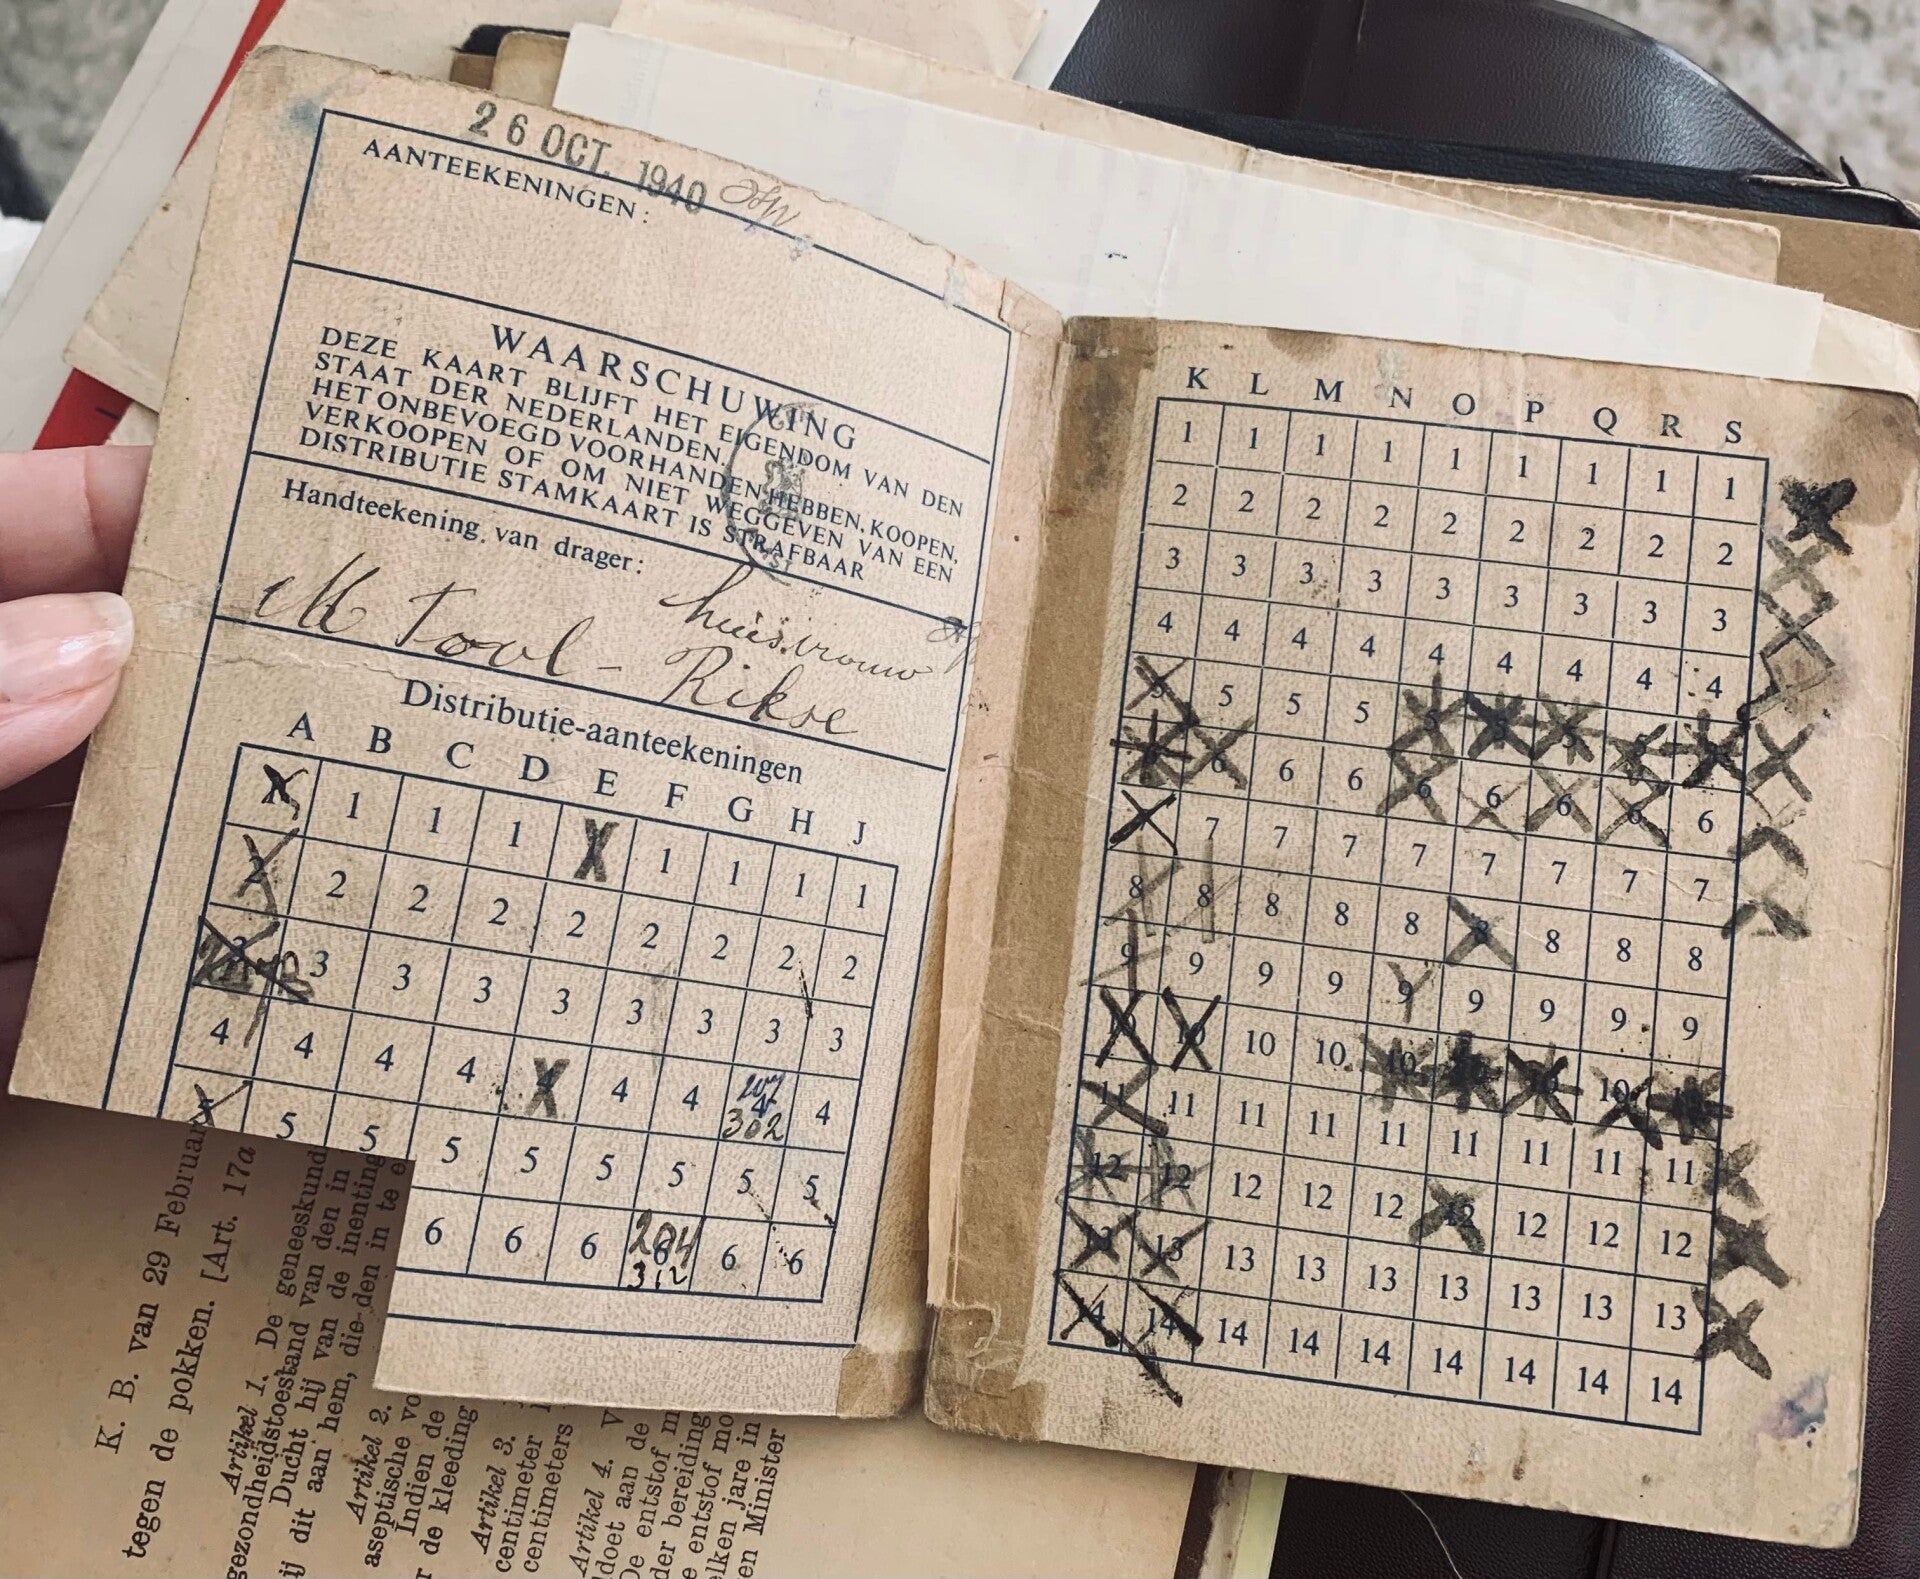 26 OCT. 1940
AANTEEKENINGEN:
WAARSCHUWING
DEZE KAART BLIJFT HET EIGENDOM VAN DEN
STAAT DER NEDERLANDEN.
HET ONBEVOEGD VOORHANDEN HEBBEN, KOOPEN,
VERKOOPEN OF OM NIET WEGGEVEN VAN EEN
DISTRIBUTIE STAMKAART IS STRAFBAAR
Handteekening van drager:
huisvrouw
M Tool-Rikse
Distributie-aanteekeningen
A B C D E F G H J
1 1 1 1 1 1 1
2 2 2 2 2 2 2 2 2
3 3 3 3 3 3 3 3 3
4 4 4 4 4 4 4 4 4
302
5 5 5 5 5 5 5 5
6 6 6 204 6 6
312
K L M N O P Q R S
1 1 1 1 1 1 1 1 1
2 2 2 2 2 2 2 2 2
3 3 3 3 3 3 3 3 3
4 4 4 4 4 4 4 4 4
5 5 5 5 5 5 5 5
6 6 6 6 6 6 6 6
7 7 7 7 7 7 7 7
8 8 8 8 8 8 8 8 8
9 9 9 9 9 9 9 9 9
10 10 10 10 10 10
11 11 11 11 11 11 11 11 11
12 12 12 12 12 12 12 12 12
13 13 13 13 13 13 13 13 13
14 14 14 14 14 14 14 14 14
K. B. van 29 Februari
tegen de pokken. [Art. 17a
Artikel 1. De geneeskund
gezondheidstoestand van den in
Ducht hij van de inenting
ij dit aan hem, die den in te e
Artikel 2.
aseptische vo
Indien de
r de kleeding
Artikel 3.
centimeter
centimeters
Artikel 4. V
doet aan de
De entstof m
der bereiding
e entstof mo
elken jare in
en Minister